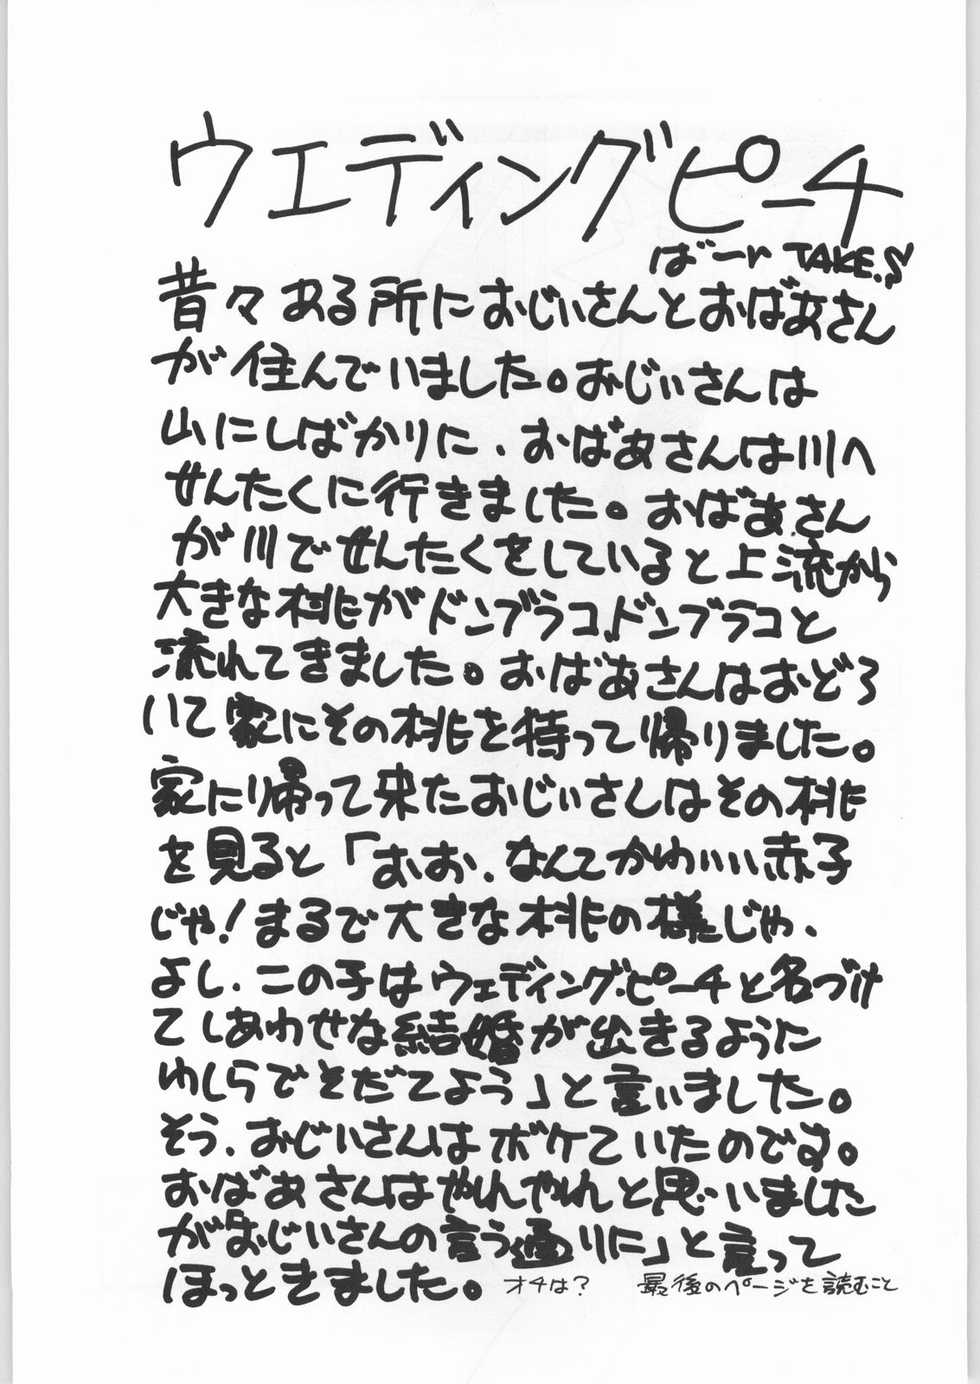 ウエディングピーチ
ばーい TAKE.S
昔々ある所におじいさんとおばあさん
が住んでいました。おじいさんは
山にしばかりに、おばあさんは川へ
せんたくに行きました。おばあさん
が川でせんたくをしていると上流から
大きな桃がドンブラコ、ドンブラコと
流れてきました。おばあさんはおどろ
いて家にその桃を持って帰りました。
家に帰って来たおじいさんはその桃
を見ると「おお、なんてかわいい赤子
じゃ!まるで大きな桃の様じゃ、
よし、この子はウェディング・ピーチと名づけ
てしあわせな結婚が出きるように
わしらでそだてよう」と言いました。
そう、おじいさんはボケていたのです。
おばあさんはやれやれと思いました
が「おじいさんの言う通りに」と言って
ほっときました。 オチは? 最後のページを読むこと